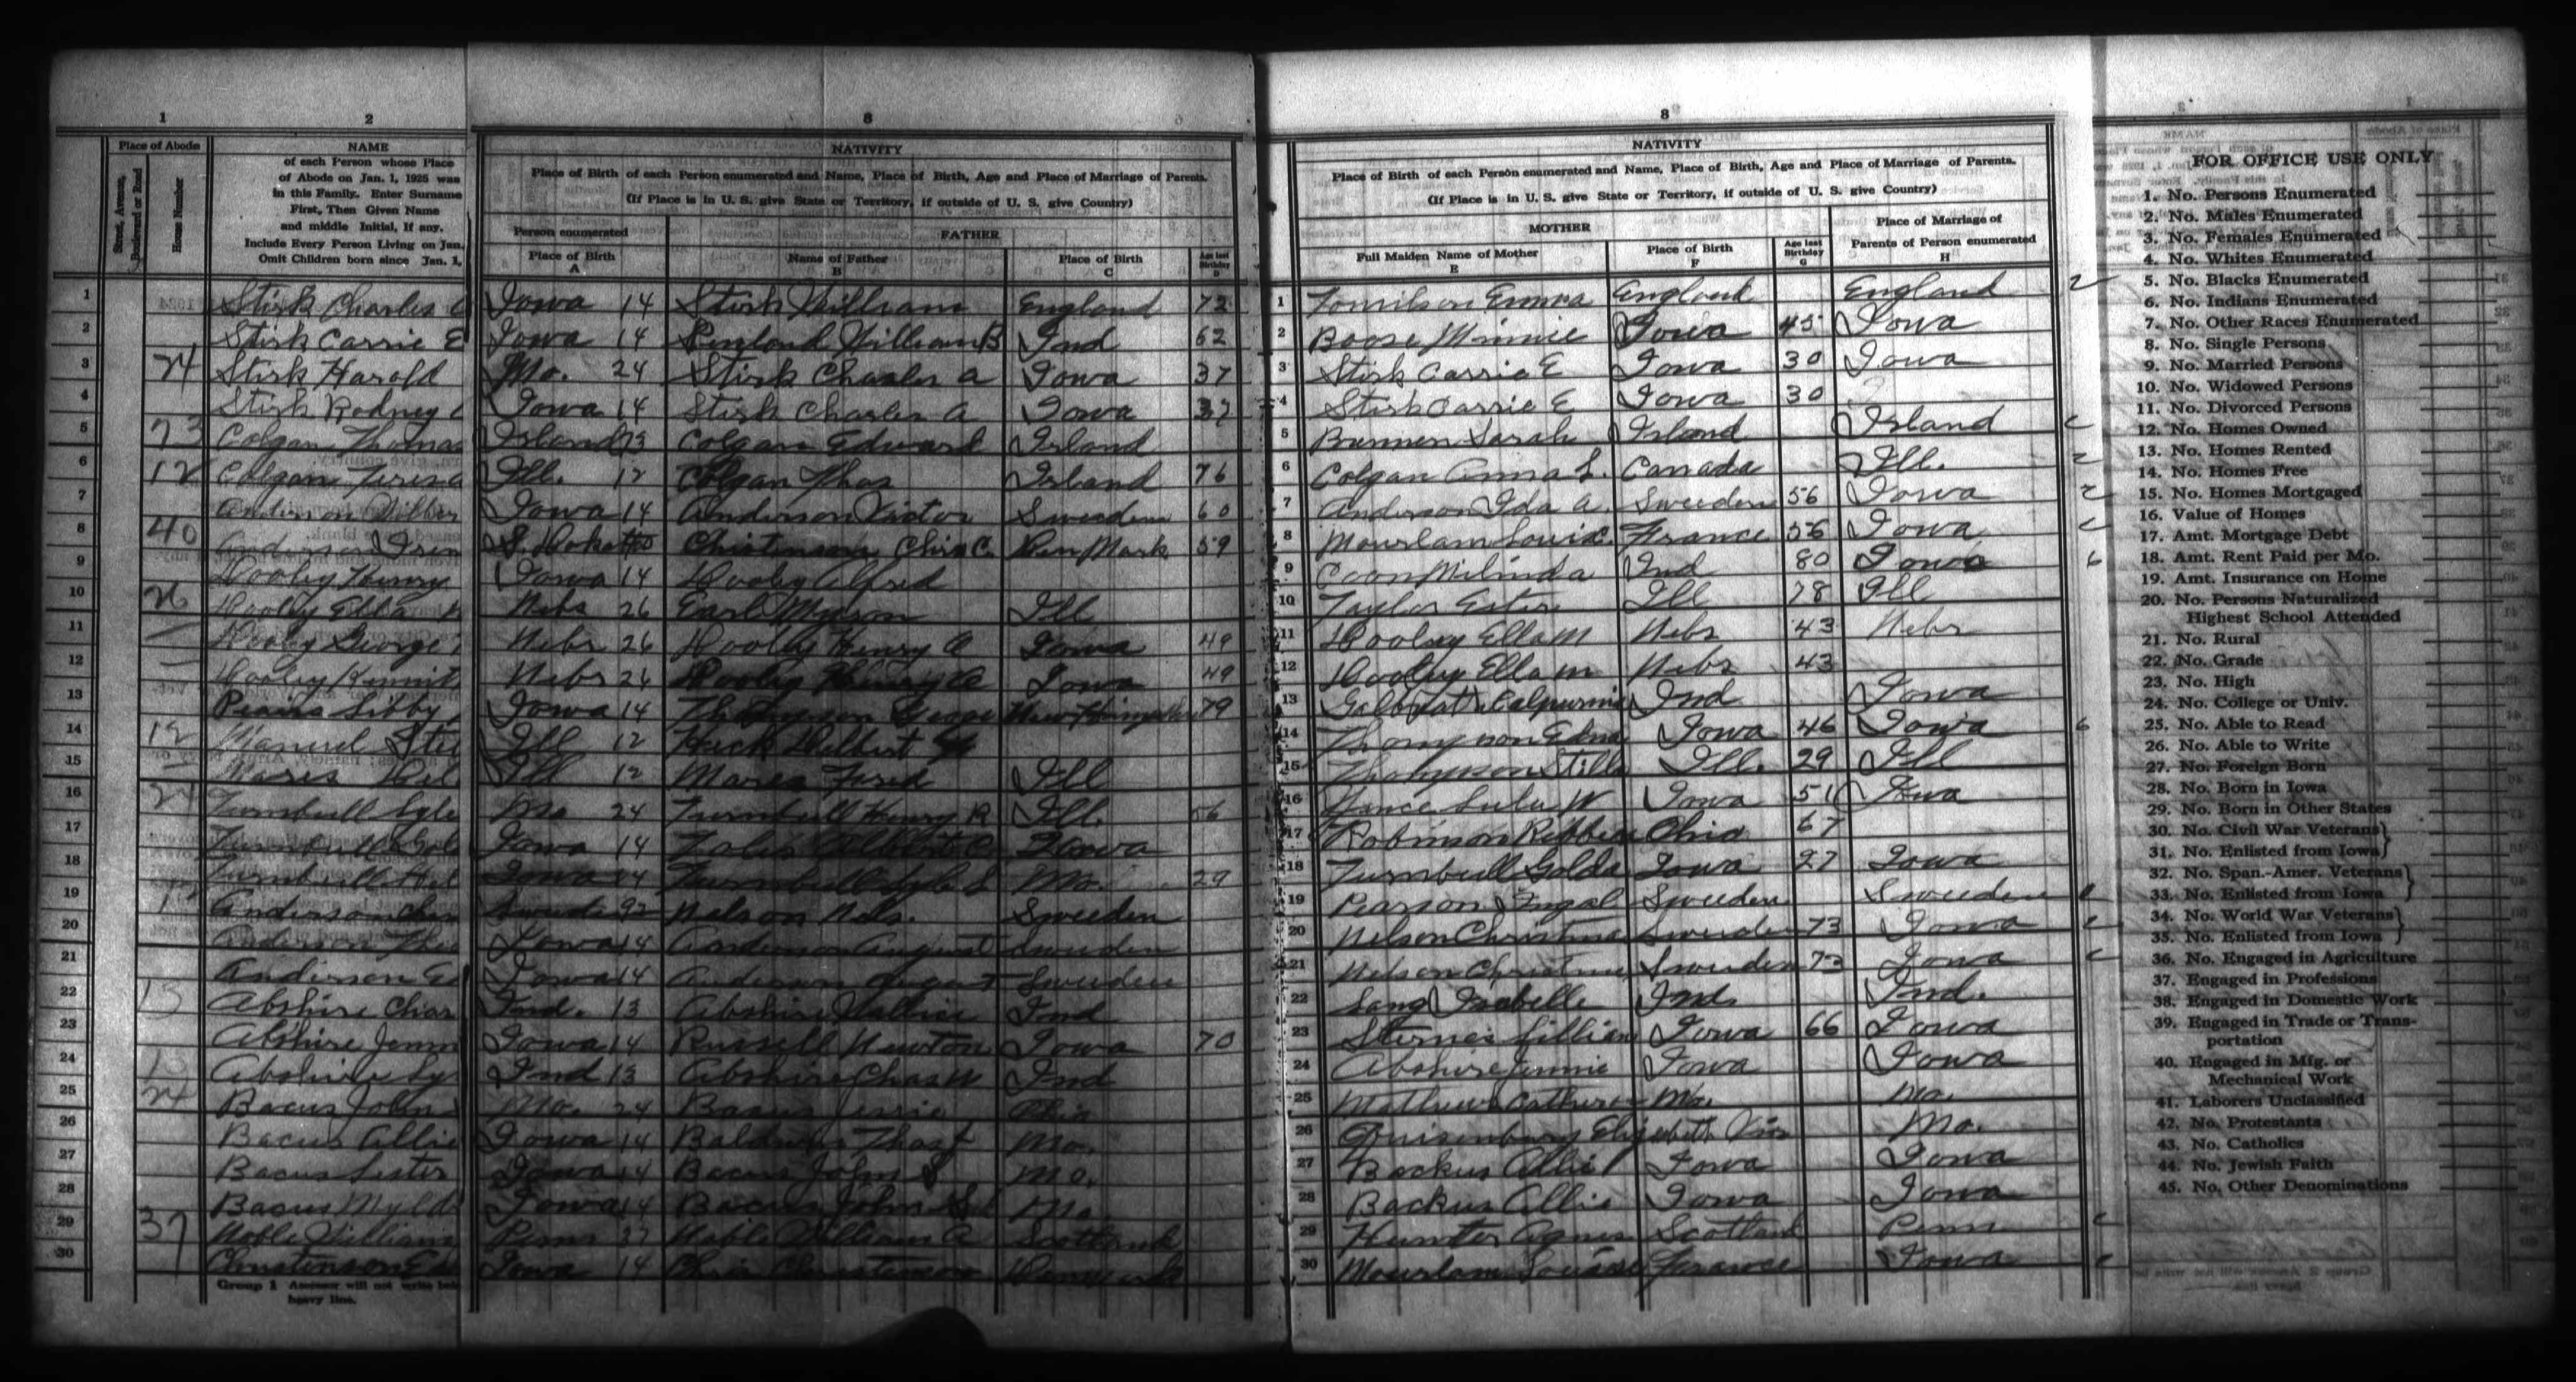 1 2 8 8
Place of Abode
Street, Avenue, Boulevard or Road
House Number
NAME
of each Person whose Place
of Abode on Jan. 1, 1925 was
in this Family. Enter Surname
First, Then Given Name
and middle Initial, if any.
Include Every Person Living on Jan.
Omit Children born since Jan. 1,
NATIVITY
Place of Birth of each Person enumerated and Name, Place of Birth, Age and Place of Marriage of Parents.
(If Place is in U. S. give State or Territory, if outside of U. S. give Country)
Person enumerated
FATHER
Place of Birth A
Name of Father B
Place of Birth C
Age last Birthday D
NATIVITY
Place of Birth of each Person enumerated and Name, Place of Birth, Age and Place of Marriage of Parents.
(If Place is in U. S. give State or Territory, if outside of U. S. give Country)
MOTHER
Full Maiden Name of Mother E
Place of Birth F
Age last Birthday G
Place of Marriage of Parents of Person enumerated H
1 Stirk Charles Iowa 14 Stirk William England 72 1 Tomilson Emma England England
2 Stirk Carrie E Iowa 14 Penland William B Ind 62 2 Boose Minnie Iowa 45 Iowa
3 24 Stirk Harold Mo. 24 Stirk Charles A Iowa 37 3 Stirk Carrie E Iowa 30 Iowa
4 Stirk Rodney Iowa 14 Stirk Charles A Iowa 37 4 Stirk Carrie E Iowa 30
5 73 Colgan Thomas Irland 73 Colgan Edward Irland 5 Brennen Sarah Irland Irland
6 12 Colgan Teresa Ill. 12 Colgan Thos Irland 76 6 Colgan Anna L. Canada Ill.
7 Anderson Iowa 14 Anderson Victor Sweeden 60 7 Anderson Ida A. Sweeden 56 Iowa
8 40 Anderson Iren S. Dakota 40 Christenson Chris C. Den Mark 59 8 Mourlam Louise France 56 Iowa
9 Hooley Henry Iowa 14 Hooley Alfred 9 Coon Milinda Ind 80 Iowa
10 26 Hooley Ella Nebs 26 Earl Myron Ill 10 Taylor Ester Ill 78 Ill
11 Hooley George Nebr 26 Hooley Henry A Iowa 49 11 Hooley Ella M Nebs 43 Nebr
12 Hooley Nebr 26 Hooley Henry A Iowa 49 12 Hooley Ella M Nebs 43
13 Libby Iowa 14 79 13 Calpurnia Ind Iowa
14 12 Manuel Ill 12 14 Thompson Edna Iowa 46 Iowa
15 Mares Ill 12 Mares Fred Ill 15 Thompson Ill. 29 Ill
16 24 Turnbull Lyle Mo 24 Turnbull Henry R Ill. 56 16 Nance Lulu W Iowa 51 Iowa
17 Iowa 14 Iowa 17 Robinson Ohio 67
18 Turnbull Iowa 14 Turnbull Lyle S Mo. 29 18 Turnbull Golda Iowa 27 Iowa
19 Anderson 92 Nelson Nels. Sweeden 19 Pearson Sweeden Sweeden
20 Anderson Iowa 14 Anderson August Sweden 20 Nelson Christina Sweeden 73 Iowa
21 Anderson Iowa 14 Anderson August Sweeden 21 Nelson Christina Sweeden 73 Iowa
22 13 Abshire Char Ind. 13 Abshire Ind 22 Isabelle Ind. Ind.
23 Abshire Jenn Iowa 14 Russell Newton Iowa 70 23 Lillian Iowa 66 Iowa
24 13 Abshire Ly Ind 13 Abshire Chas W Ind 24 Abshire Jennie Iowa Iowa
25 24 Bacus John Mo. 24 Bacus Jessie Ohio 25 Mathews Mo. Mo.
26 Bacus Allie Iowa 14 Baldwin Thos Mo. 26 Elizabeth Mo.
27 Bacus Lester Iowa 14 Bacus John S Mo. 27 Backus Allie Iowa Iowa
28 Bacus Iowa 14 Bacus John S Mo. 28 Backus Allie Iowa Iowa
29 37 Noble William Penn 37 Noble William Scotland 29 Hunter Agnes Scotland Penn
30 Christenson Iowa 14 Chris Christenson 30 Mourlam Louise France Iowa
Group 1 Assessor will not write
heavy line.
FOR OFFICE USE ONLY
1. No. Persons Enumerated
2. No. Males Enumerated
3. No. Females Enumerated
4. No. Whites Enumerated
5. No. Blacks Enumerated
6. No. Indians Enumerated
7. No. Other Races Enumerated
8. No. Single Persons
9. No. Married Persons
10. No. Widowed Persons
11. No. Divorced Persons
12. No. Homes Owned
13. No. Homes Rented
14. No. Homes Free
15. No. Homes Mortgaged
16. Value of Homes
17. Amt. Mortgage Debt
18. Amt. Rent Paid per Mo.
19. Amt. Insurance on Home
20. No. Persons Naturalized
Highest School Attended
21. No. Rural
22. No. Grade
23. No. High
24. No. College or Univ.
25. No. Able to Read
26. No. Able to Write
27. No. Foreign Born
28. No. Born in Iowa
29. No. Born in Other States
30. No. Civil War Veterans
31. No. Enlisted from Iowa
32. No. Span.-Amer. Veterans
33. No. Enlisted from Iowa
34. No. World War Veterans
35. No. Enlisted from Iowa
36. No. Engaged in Agriculture
37. Engaged in Professions
38. Engaged in Domestic Work
39. Engaged in Trade or Trans-
portation
40. Engaged in Mfg. or
Mechanical Work
41. Laborers Unclassified
42. No. Protestants
43. No. Catholics
44. No. Jewish Faith
45. No. Other Denominations